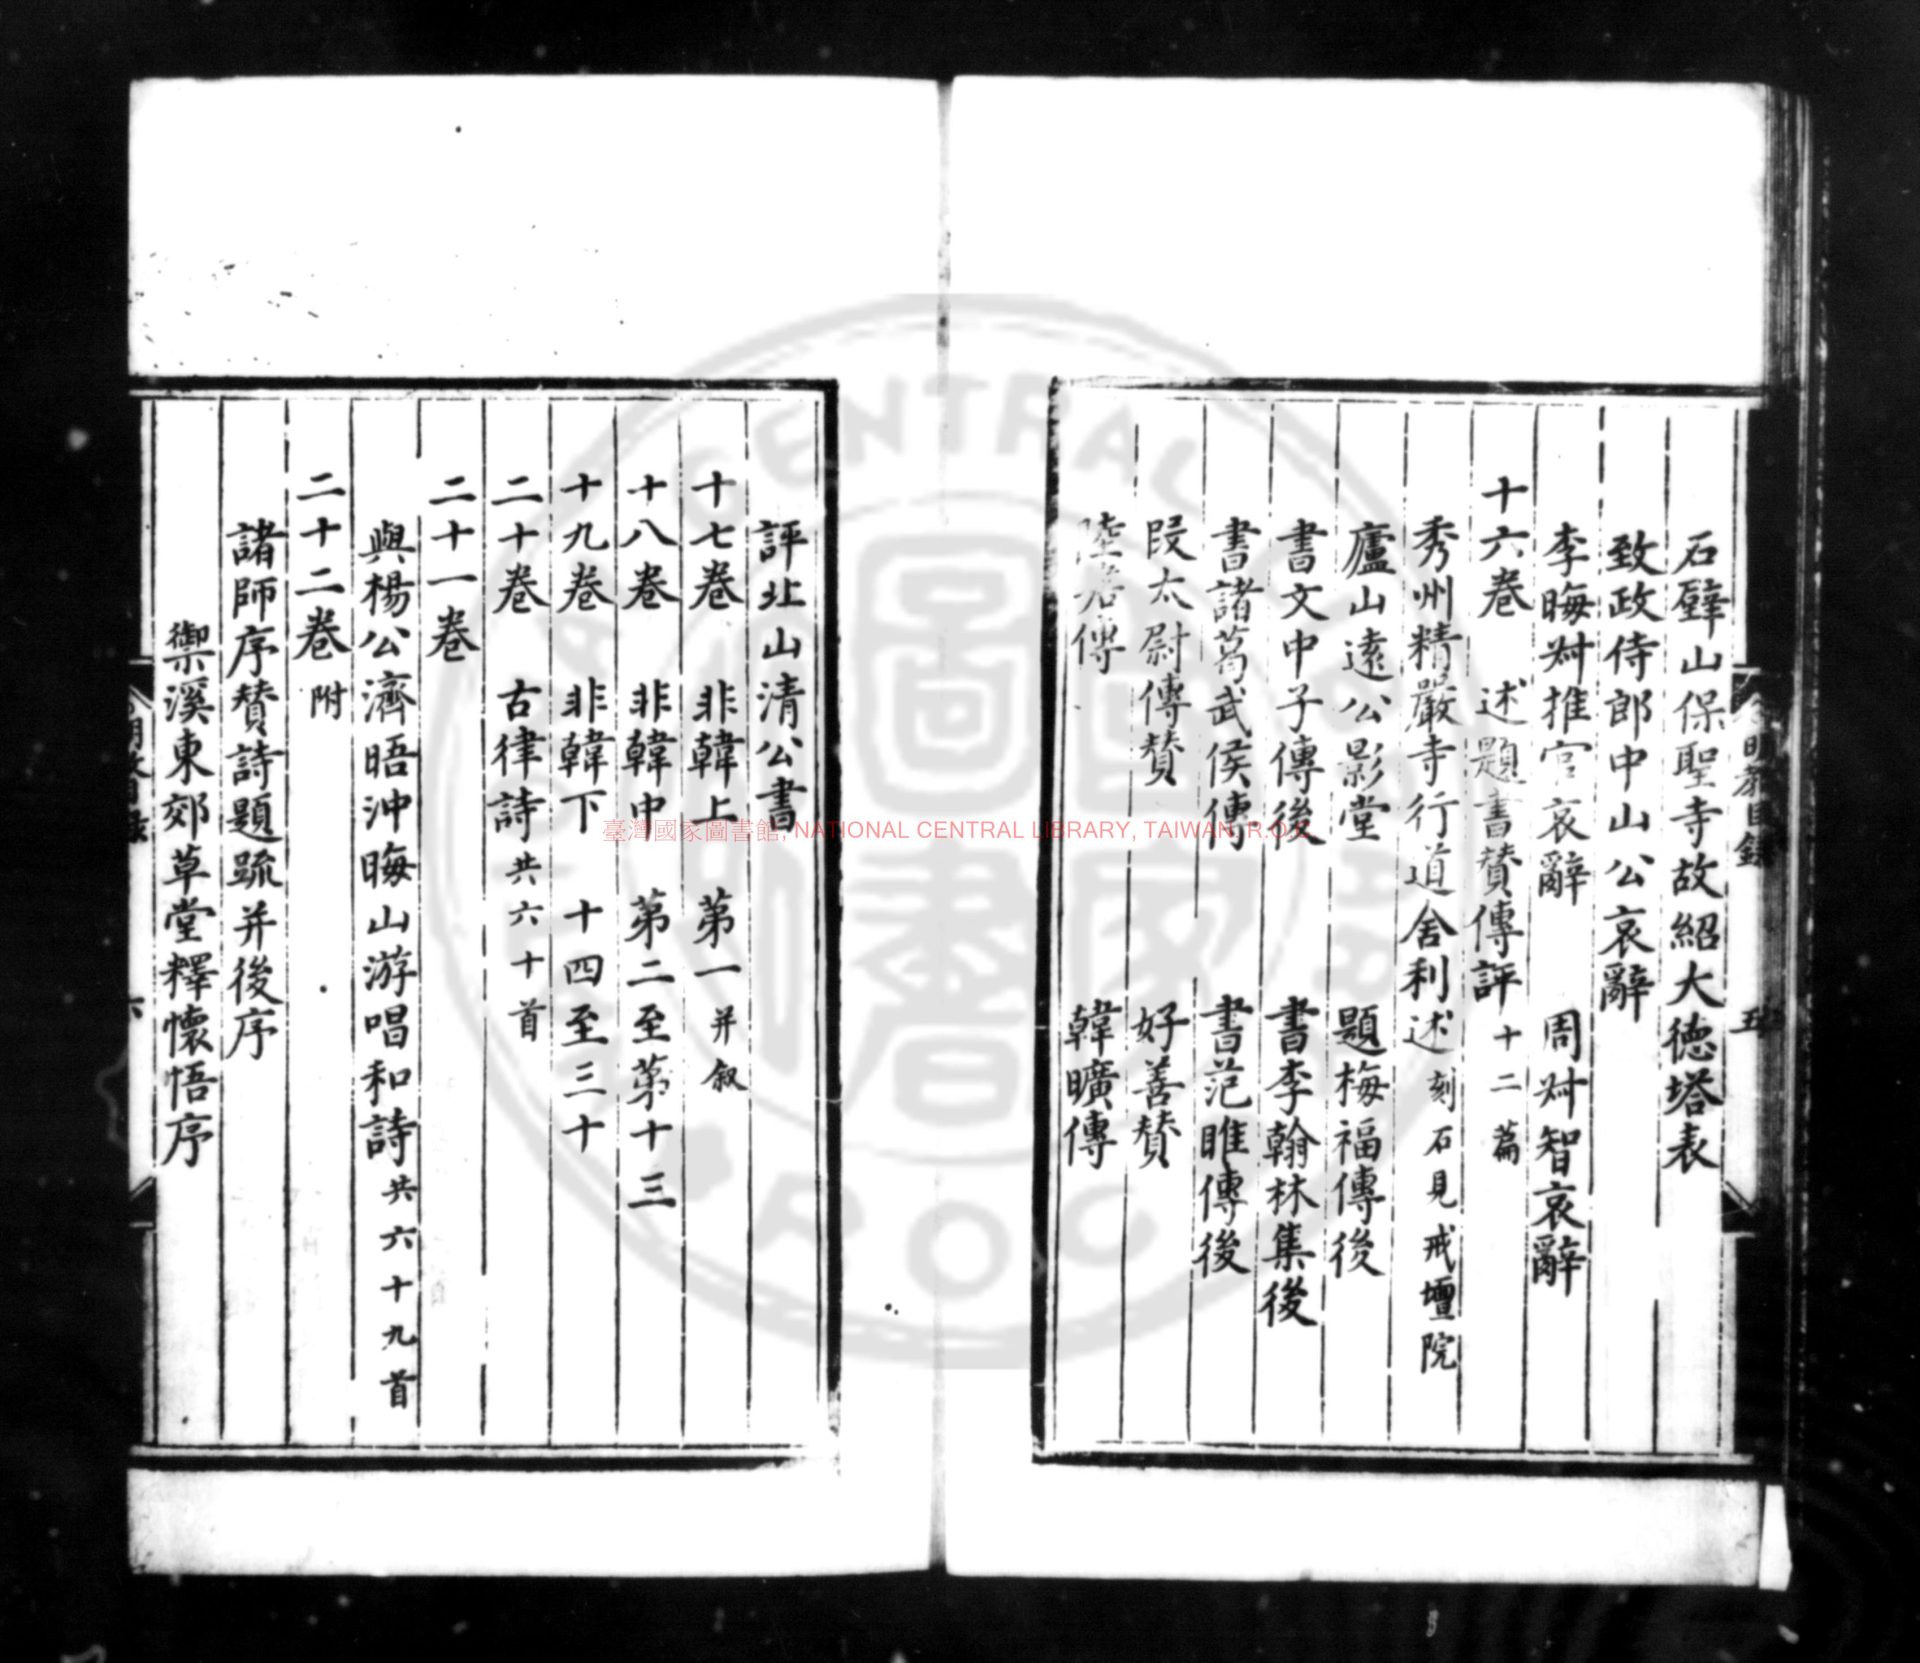 石壁山保聖寺故紹大德塔表
致政侍郎中山公哀辭
李晦叔推官哀辭　周叔智哀辭
十六卷　述題書贊傳評十二篇
秀州精嚴寺行道舍利述刻石見戒壇院
廬山遠公影堂　題梅福傳後
書文中子傳後　書李翰林集後
書諸葛武侯傳　書范雎傳後
段太尉傳贊　好善贊
陸蟾傳　韓曠傳
評北山清公書
十七卷　非韓上　第一并叙
十八卷　非韓中　第二至第十三
十九卷　非韓下　十四至三十
二十卷　古律詩共六十首
二十一卷
與楊公濟晤冲晦山游唱和詩共六十九首
二十二卷附
諸師序贊詩題疏并後序
禦溪東郊草堂釋懷悟序
臺灣國家圖書館, NATIONAL CENTRAL LIBRARY, TAIWAN, R.O.C.